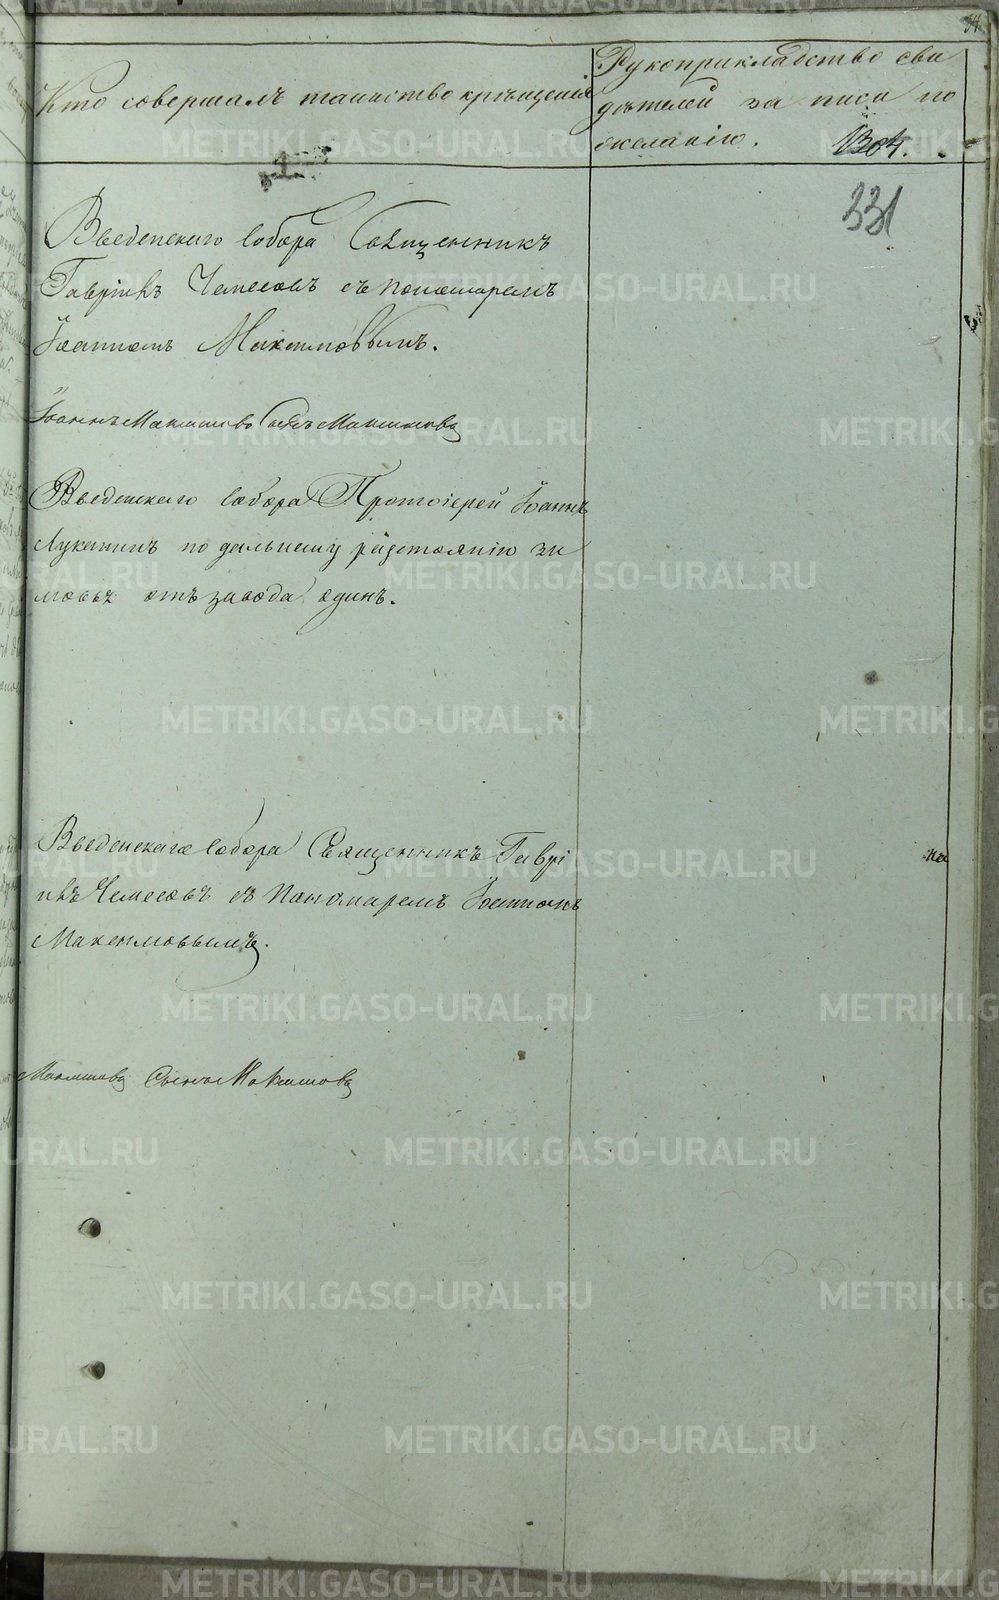 34
Кто совершалъ таинство крещенія
Рукоприкладство сви
дѣтелей записи по
желанію. 1304.
331
Введенскаго Собора Священникъ
Гавріилъ Чемесовъ съ пономаремъ
Іоанномъ Максимовымъ.
Іоаннъ
Введенскаго Собора Протоіерей Іоаннъ
Луканинъ по дальнему разстоянію зи
мовья отъ завода одинъ.
Введенскаго Собора Священникъ Гаврі
илъ Чемесовъ съ Пономаремъ Іоанномъ
Максимовымъ.
METRIKI.GASO-URAL.RU